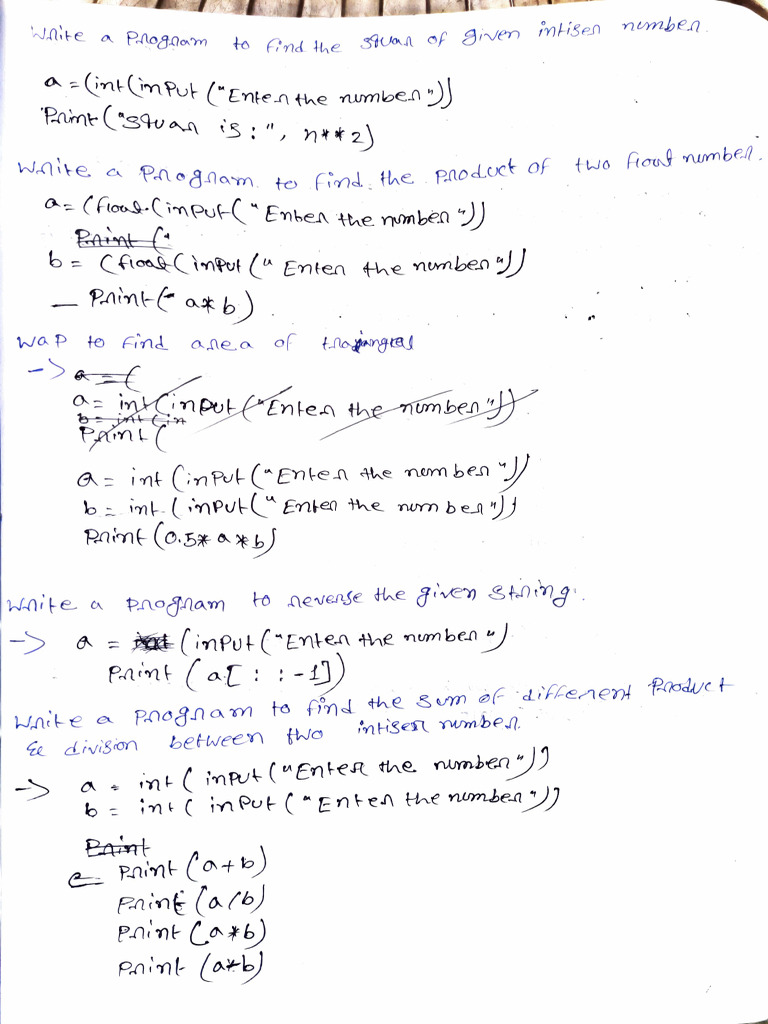 Write a Program to find the squar of given intiser number.
a = (int(input ("Enter the number"))
Print("squar is :", n**2)
Write a Program to find the product of two float number.
a = (float(input("Enter the number"))
Print ("
b = (float(input(" Enter the number"))
Print(- a*b)
Wap to find area of
-> a = (
a = int(input("Enter the number"))
b = int (in
Print (
a = int (input("Enter the number"))
b = int (input("Enter the number"))
Print (0.5* a*b)
Write a program to reverse the given string.
-> a = (input("Enter the number")
Print (a[ : : -1])
Write a program to find the sum of different Product
& division between two intiser number.
-> a = int ( input("Enter the number"))
b = int ( input ("Enter the number"))
Print
Print (a+b)
Print (a/b)
Print (a*b)
Print (a*b)